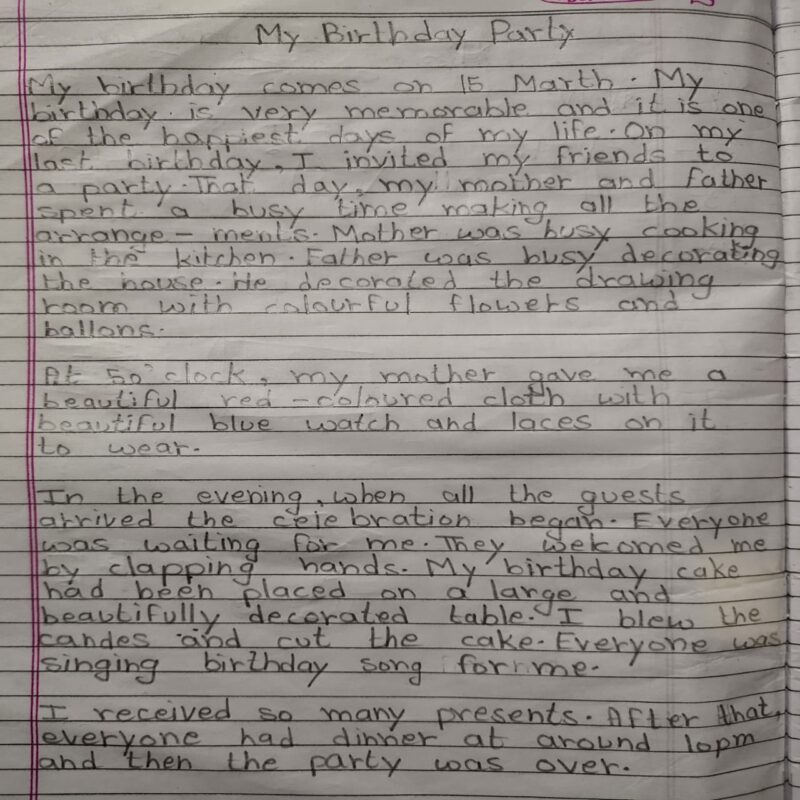 My Birthday Party
My birthday comes on 15 Marth. My
birthday. is very memorable and it is one
of the happiest days of my life. On my
last birthday, I invited my friends to
a party. That day, my mother and father
spent a busy time making all the
arrange - ments. Mother was busy cooking
in the kitchen. Father was busy decorating
the house. He decorated the drawing
room with colourful flowers and
ballons.
At 5o'clock, my mother gave me a
beautiful red - coloured cloth with
beautiful blue watch and laces on it
to wear.
In the evening, when all the guests
arrived the celebration began. Everyone
was waiting for me. They welcomed me
by clapping hands. My birthday cake
had been placed on a large and
beautifully decorated table. I blew the
candes and cut the cake. Everyone was
singing birthday song for me.
I received so many presents. After that,
everyone had dinner at around 10pm
and then the party was over.